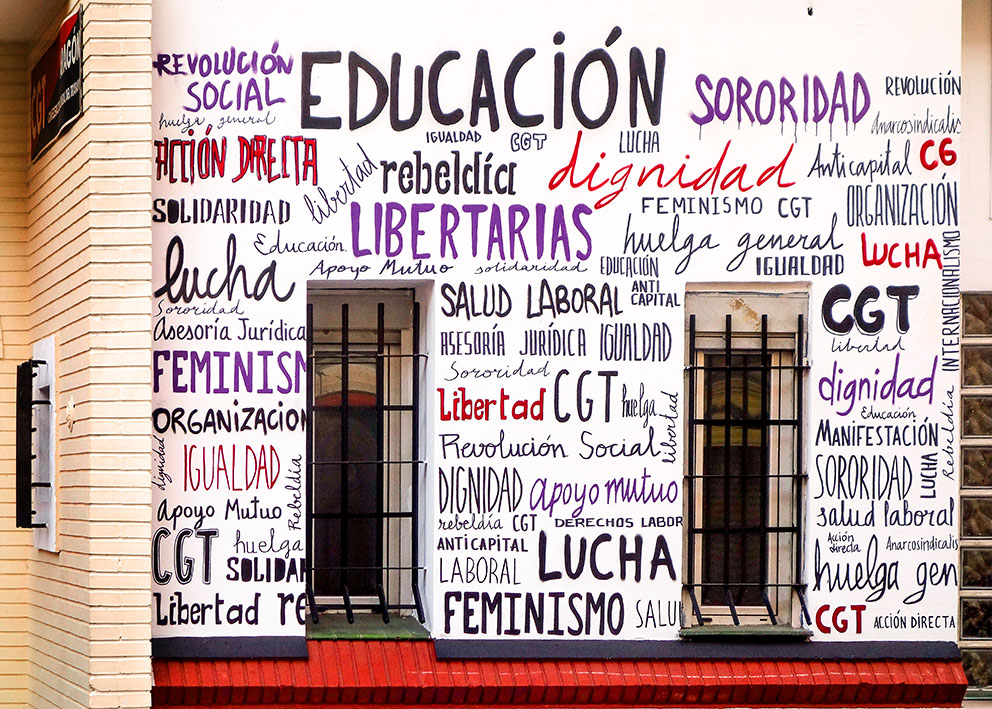 CGT
ARAGÓN
REVOLUCIÓN
SOCIAL
EDUCACIÓN
SORORIDAD
REVOLUCIÓN
huelga general
IGUALDAD
CGT
LUCHA
Anarcosindicalis
ACCIÓN DIRECTA
libertad
rebeldía
dignidad
Anticapital
CG
SOLIDARIDAD
LIBERTARIAS
FEMINISMO CGT
ORGANIZACIÓN
Educación
huelga general
LUCHA
lucha
Apoyo Mutuo
solidaridad
EDUCACIÓN
IGUALDAD
INTERNACIONALISMO
Sororidad
SALUD LABORAL
ANTI
CAPITAL
CGT
Asesoría Jurídica
ASESORÍA JURÍDICA
IGUALDAD
libertad
FEMINISM
Sororidad
dignidad
ORGANIZACION
Libertad
CGT
huelga
libertad
Educación
MANIFESTACIÓN
Rebeldía
dignidad
IGUALDAD
Rebeldía
Revolución Social
SORORIDAD
LUCHA
DIGNIDAD
apoyo mutuo
Apoyo Mutuo
rebeldía
CGT
DERECHOS LABOR
salud laboral
CGT
huelga
ANTICAPITAL
LUCHA
Acción
directa
Anarcosindicalis
SOLIDAR
LABORAL
huelga gen
Libertad
re
FEMINISMO
SALU
CGT
ACCIÓN DIRECTA